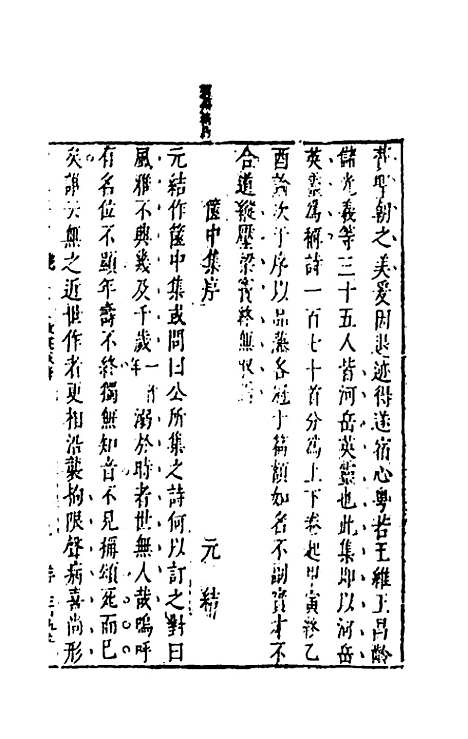 贊聖朝之美爰因退迹得遂宿心粤若王維王昌齡
儲光羲等三十五人皆河岳英靈也此集即以河岳
英靈爲稱詩一百七十首分爲上下卷起甲寅終乙
酉論次于序以品藻各冠于篇額如名不副實才不
合道縱壓梁竇終無取焉
篋中集序
元結
元結作篋中集或問曰公所集之詩何以訂之對曰
風雅不興幾及千歲溺於時者世無人哉嗚呼
有名位不顯年壽不終獨無知音不見稱頌死而已
矣誰云無之近世作者更相沿襲拘限聲病喜尚形